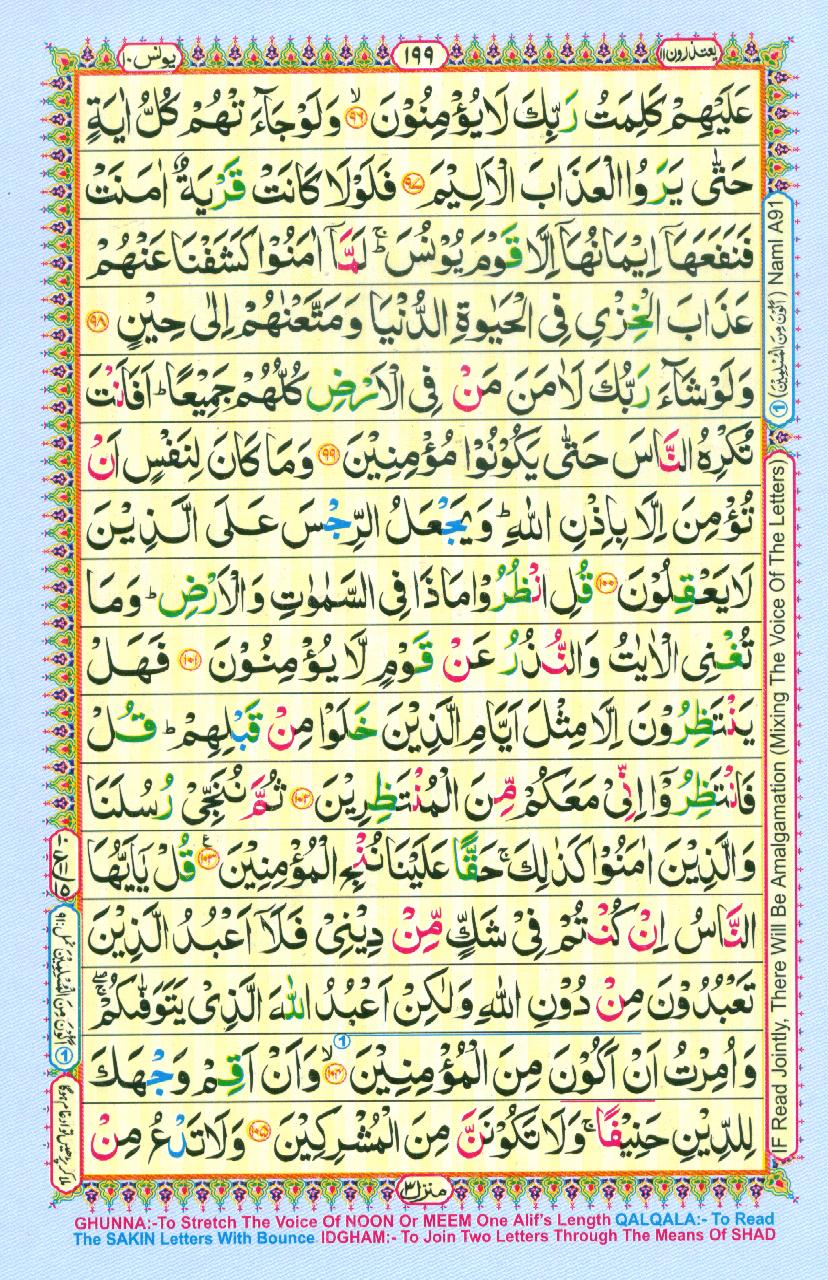 یعتذرون ۱۱
۱۹۹
یونس ۱۰
عَلَيْهِمْ كَلِمَتُ رَبِّكَ لَا يُؤْمِنُوْنَ ۙ﴿۹۶﴾ وَلَوْ جَآءَتْهُمْ كُلُّ اٰيَةٍ
حَتّٰى يَرَوُا الْعَذَابَ الْاَلِيْمَ ﴿۹۷﴾ فَلَوْلَا كَانَتْ قَرْيَةٌ اٰمَنَتْ
فَنَفَعَهَاۤ اِيْمَانُهَاۤ اِلَّا قَوْمَ يُوْنُسَ ؕ لَمَّاۤ اٰمَنُوْا كَشَفْنَا عَنْهُمْ
عَذَابَ الْخِزْىِ فِى الْحَيٰوةِ الدُّنْيَا وَمَتَّعْنٰهُمْ اِلٰى حِيْنٍ ﴿۹۸﴾
وَلَوْ شَآءَ رَبُّكَ لَاٰمَنَ مَنْ فِى الْاَرْضِ كُلُّهُمْ جَمِيْعًا ؕ اَفَاَنْتَ
تُكْرِهُ النَّاسَ حَتّٰى يَكُوْنُوْا مُؤْمِنِيْنَ ﴿۹۹﴾ وَمَا كَانَ لِنَفْسٍ اَنْ
تُؤْمِنَ اِلَّا بِاِذْنِ اللّٰهِ ؕ وَيَجْعَلُ الرِّجْسَ عَلَى الَّذِيْنَ
لَا يَعْقِلُوْنَ ﴿۱۰۰﴾ قُلِ انْظُرُوْا مَاذَا فِى السَّمٰوٰتِ وَالْاَرْضِ ؕ وَمَا
تُغْنِى الْاٰيٰتُ وَالنُّذُرُ عَنْ قَوْمٍ لَّا يُؤْمِنُوْنَ ﴿۱۰۱﴾ فَهَلْ
يَنْتَظِرُوْنَ اِلَّا مِثْلَ اَيَّامِ الَّذِيْنَ خَلَوْا مِنْ قَبْلِهِمْ ؕ قُلْ
فَانْتَظِرُوْۤا اِنِّىْ مَعَكُمْ مِّنَ الْمُنْتَظِرِيْنَ ﴿۱۰۲﴾ ثُمَّ نُنَجِّىْ رُسُلَنَا
وَالَّذِيْنَ اٰمَنُوْا كَذٰلِكَ ۚ حَقًّا عَلَيْنَا نُنْجِ الْمُؤْمِنِيْنَ ﴿۱۰۳﴾ قُلْ يٰۤاَيُّهَا
النَّاسُ اِنْ كُنْتُمْ فِىْ شَكٍّ مِّنْ دِيْنِىْ فَلَاۤ اَعْبُدُ الَّذِيْنَ
تَعْبُدُوْنَ مِنْ دُوْنِ اللّٰهِ وَلٰكِنْ اَعْبُدُ اللّٰهَ الَّذِىْ يَتَوَفّٰٮكُمْ
وَاُمِرْتُ اَنْ اَكُوْنَ مِنَ الْمُؤْمِنِيْنَ ۙ﴿۱۰۴﴾ وَاَنْ اَقِمْ وَجْهَكَ
لِلدِّيْنِ حَنِيْفًا ۚ وَلَا تَكُوْنَنَّ مِنَ الْمُشْرِكِيْنَ ﴿۱۰۵﴾ وَلَا تَدْعُ مِنْ
منزل ۳
① (اَكُوْنَ مِنَ الْمُسْلِمِيْنَ) Naml A91
IF Read Jointly, There Will Be Amalgamation (Mixing The Voice Of The Letters)
① اَكُوْنَ مِنَ الْمُسْلِمِيْنَ نمل: ۹۱
ملا کر پڑھیں تو ادغام ہوگا
GHUNNA:-To Stretch The Voice Of NOON Or MEEM One Alif's Length QALQALA:- To Read
The SAKIN Letters With Bounce IDGHAM:- To Join Two Letters Through The Means Of SHAD